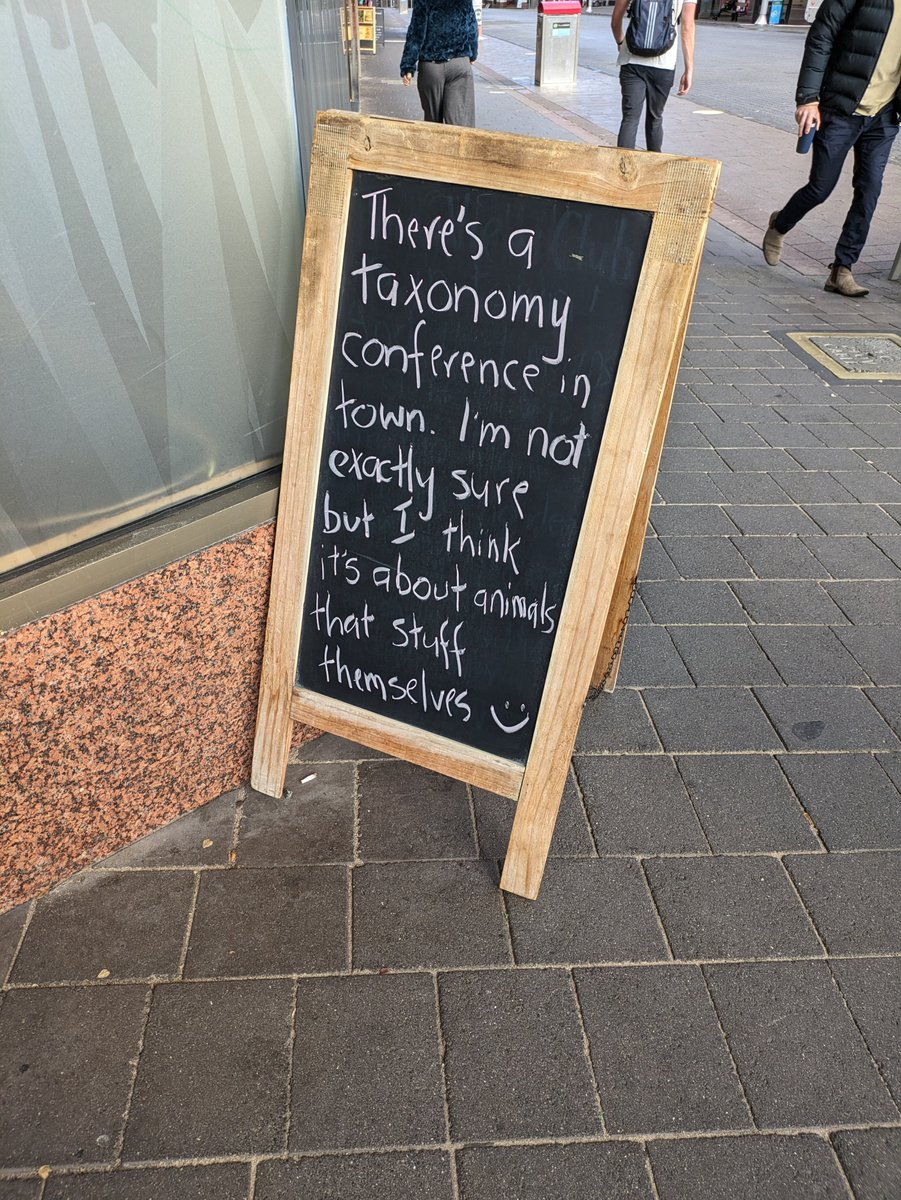 There's a
taxonomy
conference in
town. I'm not
exactly sure
but I think
it's about animals
that stuff
themselves